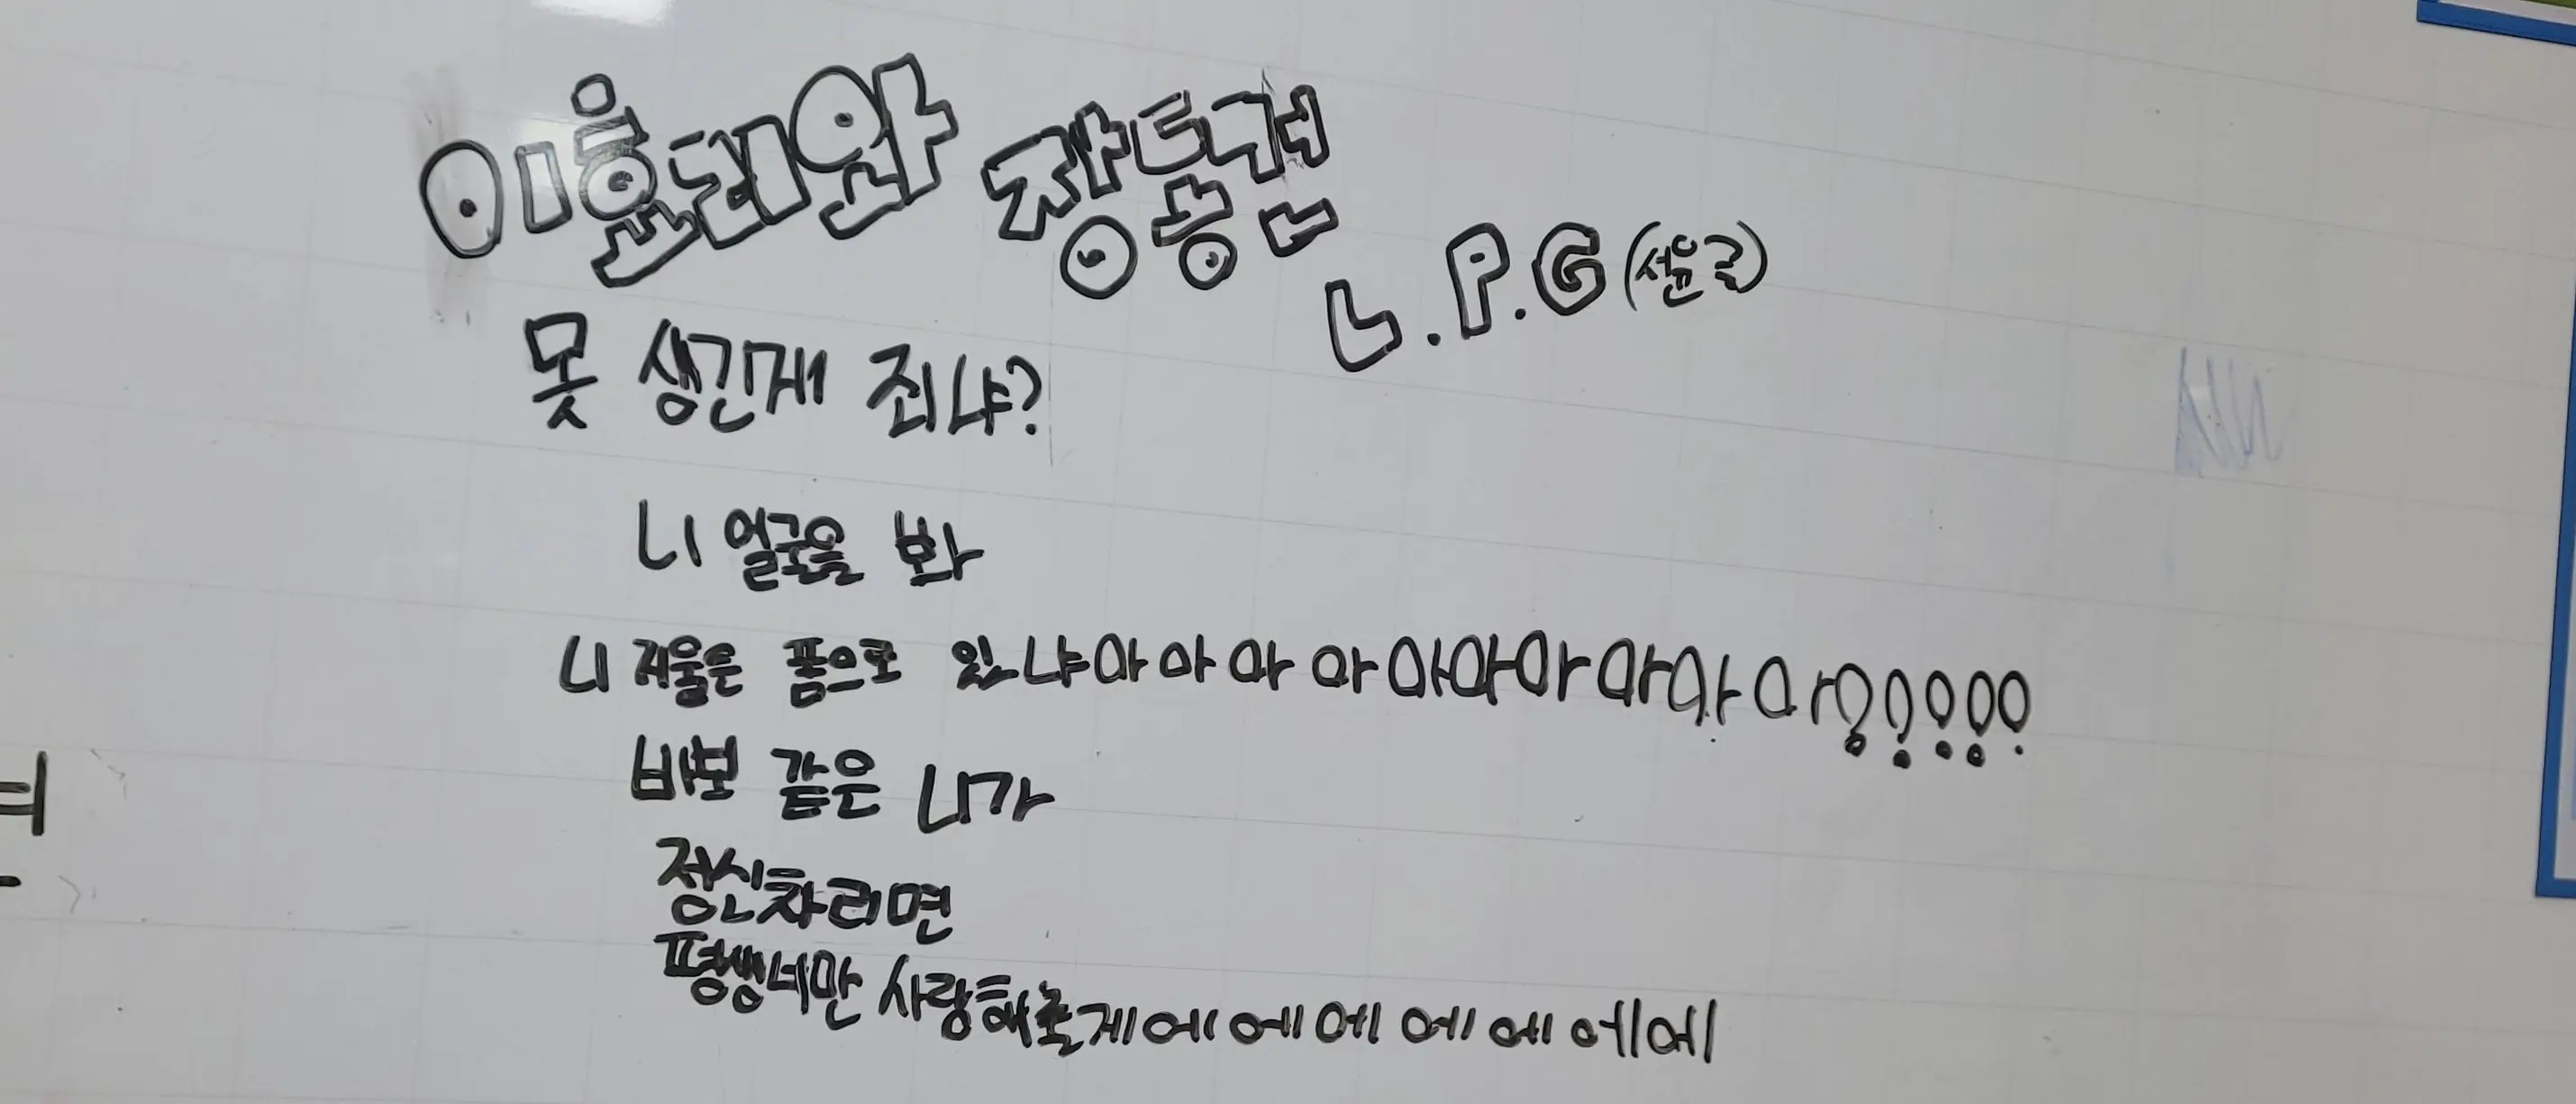 이효리와 장동건
L.P.G(서윤곡)
못 생긴게 죄냐?
니 얼굴을 봐
니 거울은 폼으로 있냐아아아아아아아아아아아?!!!!
바보 같은 니가
정신차리면
평생너만 사랑해줄게에에에에에에에